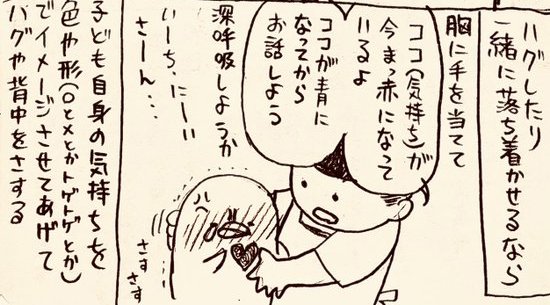 ハグしたり
一緒に落ち着かせるなら
胸に手を当てて
ココ(気持ち)が
今まっ赤になって
いるよ
ココが青に
なってから
お話しよう
深呼吸しようか
いーち、にーい
さーん…
さすさす
子ども自身の気持ちを
色や形(○とメとかトゲトゲとか)
でイメージさせてあげて
ハグや背中をさする